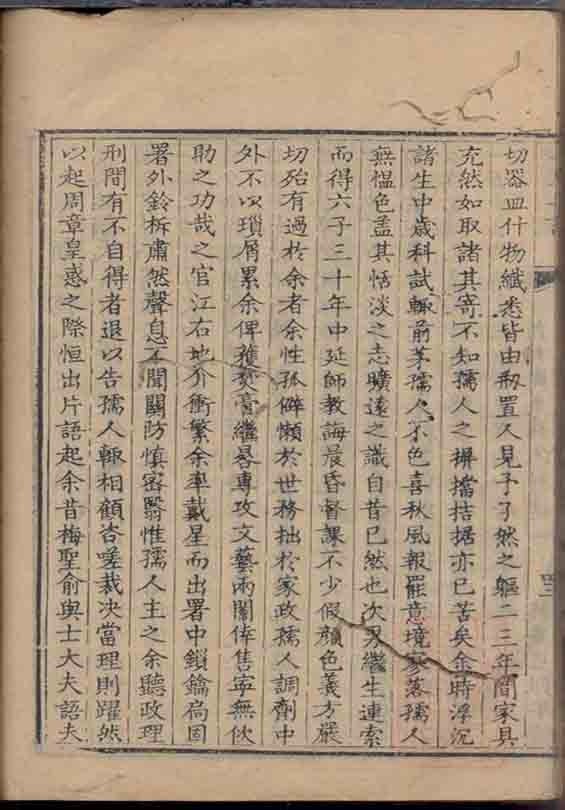 切器皿什物纖悉皆由剏置人見予了然之軀二三年間家具
充然如取諸其寄不知孺人之摒擋拮据亦已苦矣余時浮沉
諸生中歲科試輒前茅孺人不色喜秋風報罷意境寥落孺人
無慍色盖其恬淡之志曠遠之識自昔已然也次男繼生連索
而得六子三十年中延師教誨晨昏督課不少假顔色義方嚴
切殆有過於余者余性孤僻懶於世務拙於家政孺人調劑中
外不以瑣屑累余俾獲焚膏繼晷專攻文藝兩闈倖售寧無佽
助之功哉之官江右地介衝繁余率戴星而出署中鎖鑰扃固
署外鈴柝肅然聲息不聞關防慎密翳惟孺人主之余聽政理
刑間有不自得者退以告孺人輒相顧咨嗟裁决當理則躍然
以起周章皇惑之際恒出片語起余昔梅聖俞與士大夫語夫